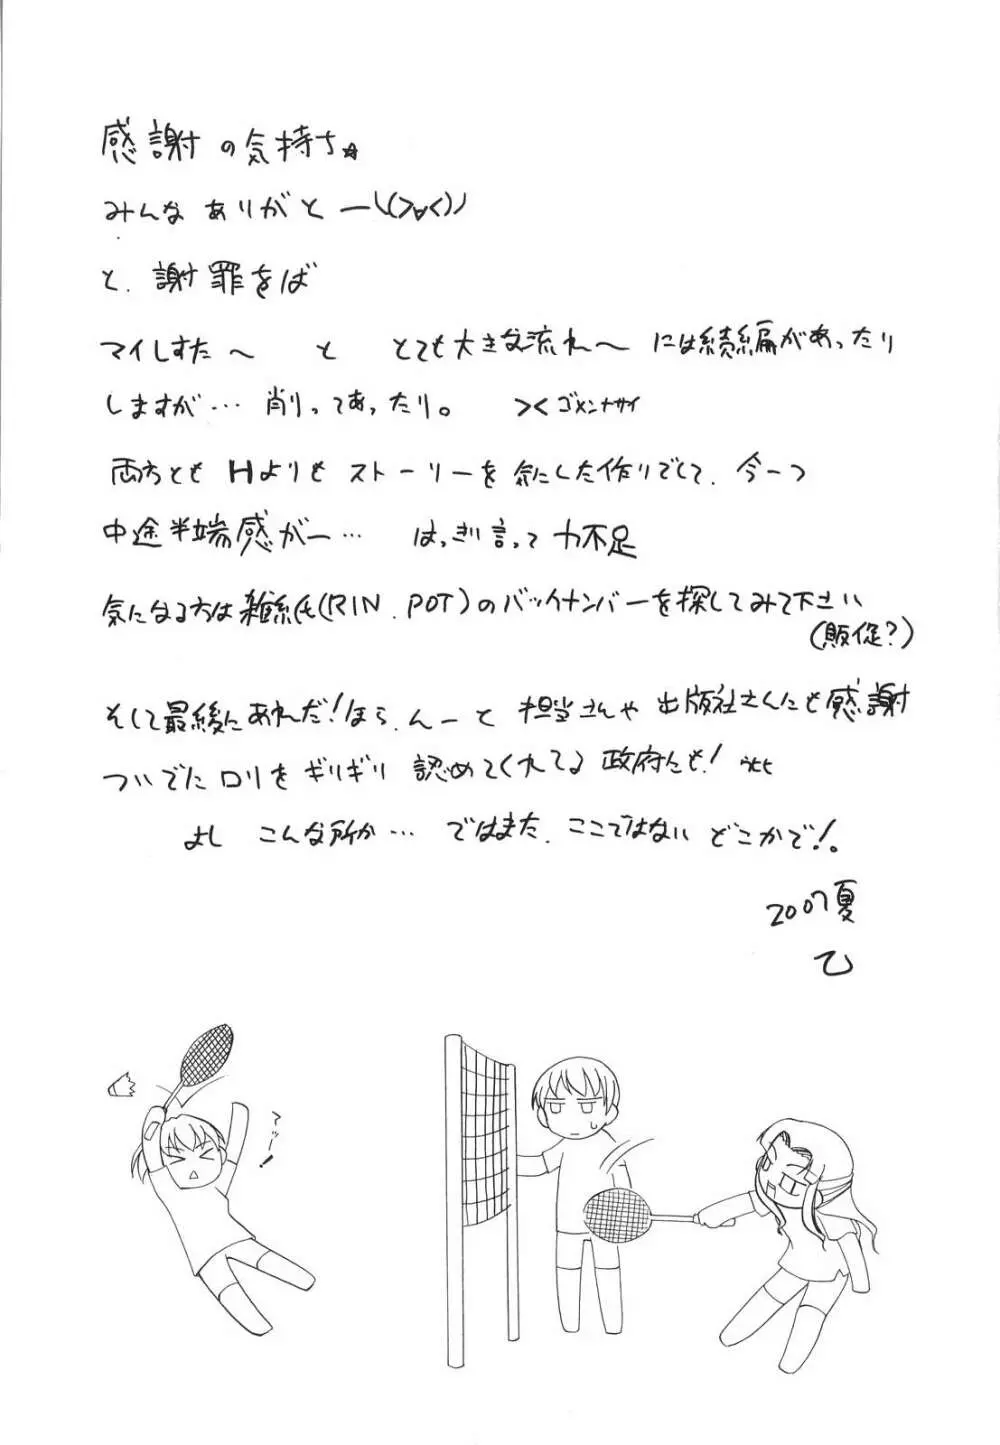 感謝の気持ち☆
みんな ありがとー\(>∀<)ノ
と、謝罪をば
マイしすた～ と とても大きな流れ～ には続編があったり
しますが… 削ってあったり。 >< ゴメンナサイ
両方とも Hよりも ストーリーを 気にした作りでして、今一つ
中途半端感がー… はっきり言って 力不足
気になる方は雑誌(RIN、POT)のバックナンバーを探してみて下さい
(販促?)
そして最後にあれだ!ほら、んーと 担当さんや 出版社さんにも感謝
ついでにロリをギリギリ 認めてくれてる 政府にも!
よし こんな所か… ではまた、ここではない どこかで!。
2007夏
乙
てぃー!